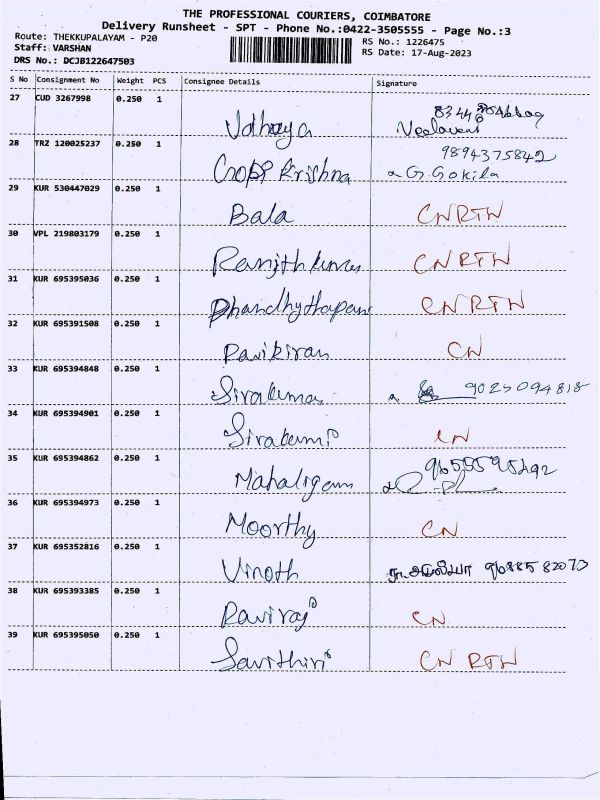 THE PROFESSIONAL COURIERS, COIMBATORE
Delivery Runsheet - SPT - Phone No.:0422-3505555 - Page No.:3
Route: THEKKUPALAYAM - P20
Staff: VARSHAN
DRS No.: DCJB122647503
RS No.: 1226475
RS Date: 17-Aug-2023
S No Consignment No Weight PCS Consignee Details Signature
27 CUD 3267998 0.250 1
28 TRZ 120025237 0.250 1 Gopi Krishna 9894375842
G. Gokila
29 KUR 530447029 0.250 1 Bala CNRTN
30 VPL 219803179 0.250 1 Ranjith kumar CNRTN
31 KUR 695395036 0.250 1 Dhandhythapani CNRTN
32 KUR 695391508 0.250 1 Ravikiran CN
33 KUR 695394848 0.250 1 Sivakumar 9025094818
34 KUR 695394901 0.250 1 CN
35 KUR 695394862 0.250 1 Mahaligam
36 KUR 695394973 0.250 1 Moorthy CN
37 KUR 695352816 0.250 1 Vinoth 9688582073
38 KUR 695393385 0.250 1 Raviraj CN
39 KUR 695395050 0.250 1 Savithiri CN RTN